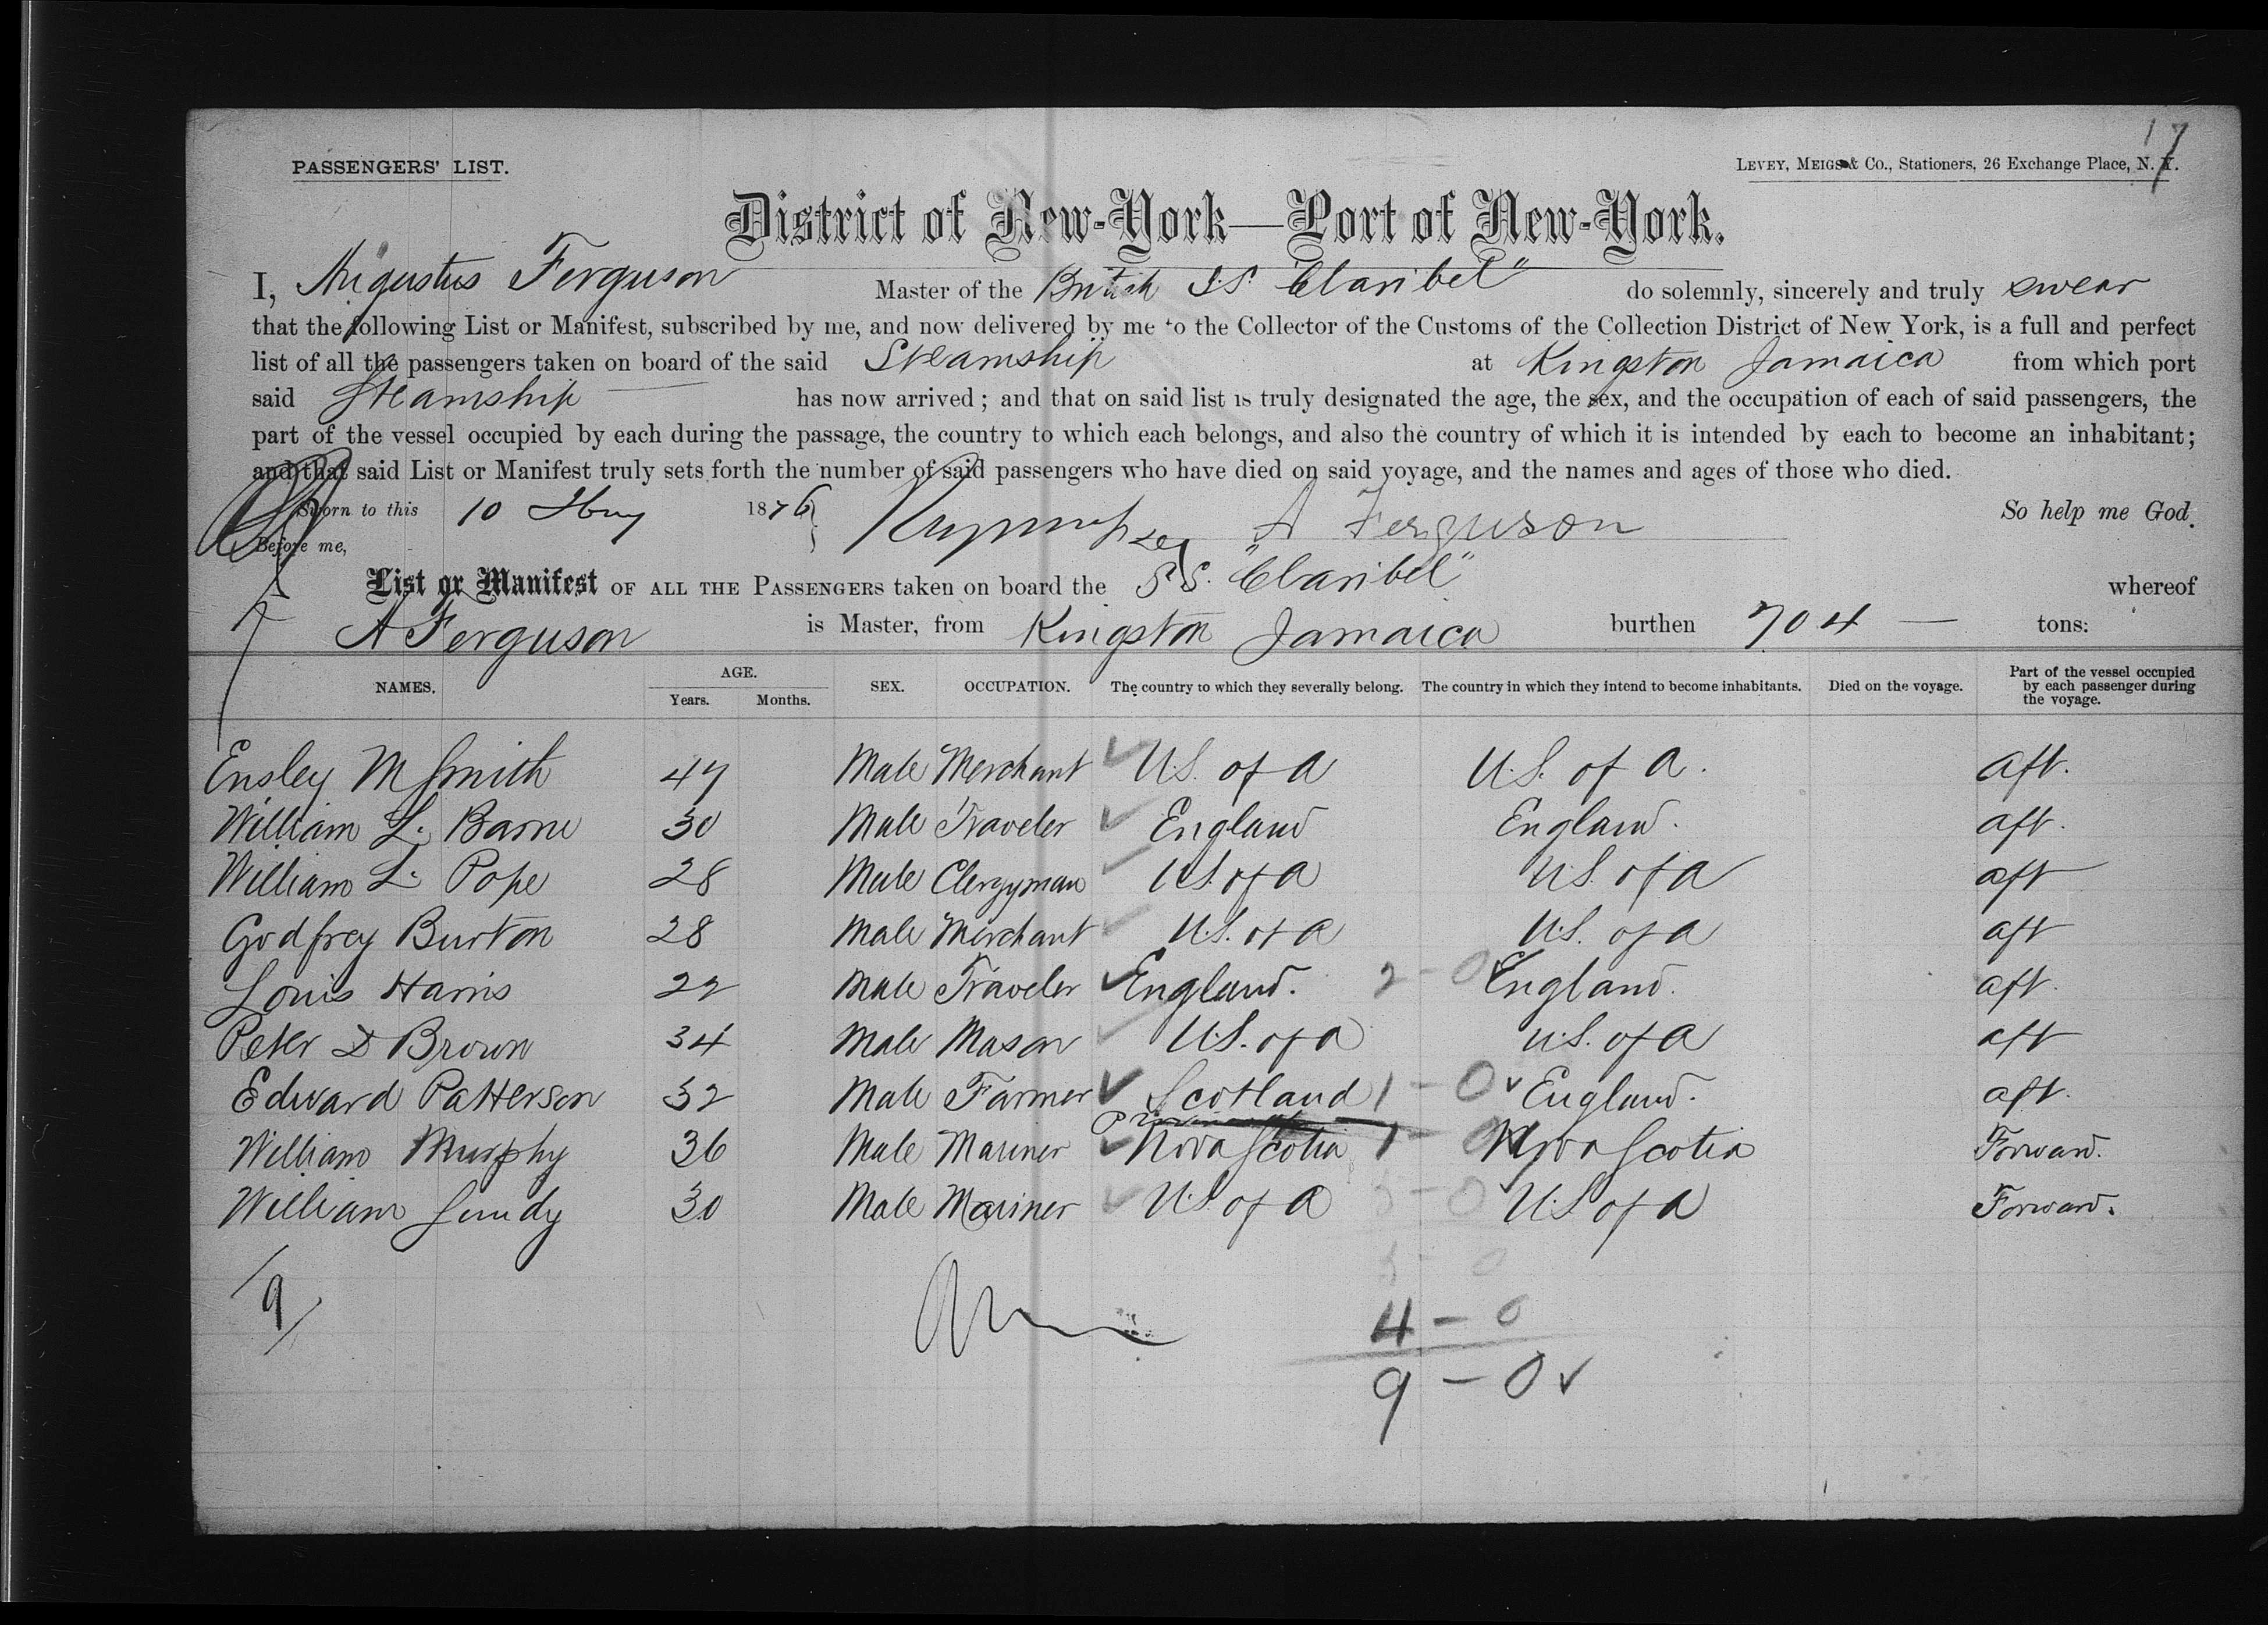 17
PASSENGERS' LIST.
LEVEY, MEIGS & Co., Stationers, 26 Exchange Place, N. Y.
District of New-York—Port of New-York.
I, Augustus Ferguson Master of the British S.S. "Claribel" do solemnly, sincerely and truly swear
that the following List or Manifest, subscribed by me, and now delivered by me to the Collector of the Customs of the Collection District of New York, is a full and perfect
list of all the passengers taken on board of the said Steamship at Kingston Jamaica from which port
said Steamship has now arrived; and that on said list is truly designated the age, the sex, and the occupation of each of said passengers, the
part of the vessel occupied by each during the passage, the country to which each belongs, and also the country of which it is intended by each to become an inhabitant;
and that said List or Manifest truly sets forth the number of said passengers who have died on said voyage, and the names and ages of those who died.
Sworn to this 10 1876 A Ferguson So help me God.
Before me,
List or Manifest OF ALL THE PASSENGERS taken on board the S.S. "Claribel" whereof
A Ferguson is Master, from Kingston Jamaica burthen 704 — tons:
NAMES. AGE. Years. Months. SEX. OCCUPATION. The country to which they severally belong. The country in which they intend to become inhabitants. Died on the voyage. Part of the vessel occupied by each passenger during the voyage.
Ensley M Smith 47 Male Merchant U.S. of A U.S. of A. aft.
William L. Barne 30 Male Traveler England England. aft.
William L. Pope 28 Male Clergyman U.S. of A U.S. of A aft
Godfrey Burton 28 Male Merchant U.S. of A U.S. of A aft
Louis Harris 22 Male Traveler England. 2 - 0 England. aft.
Peter D Brown 34 Male Mason U.S. of A U.S. of A aft
Edward Patterson 32 Male Farmer Scotland 1 - 0 England. aft.
William Murphy 36 Male Mariner Nova Scotia 1 - 0 Nova Scotia Forward.
William Gundy 30 Male Mariner U.S of A U.S of A Forward.
9
4 - 0
9 - 0